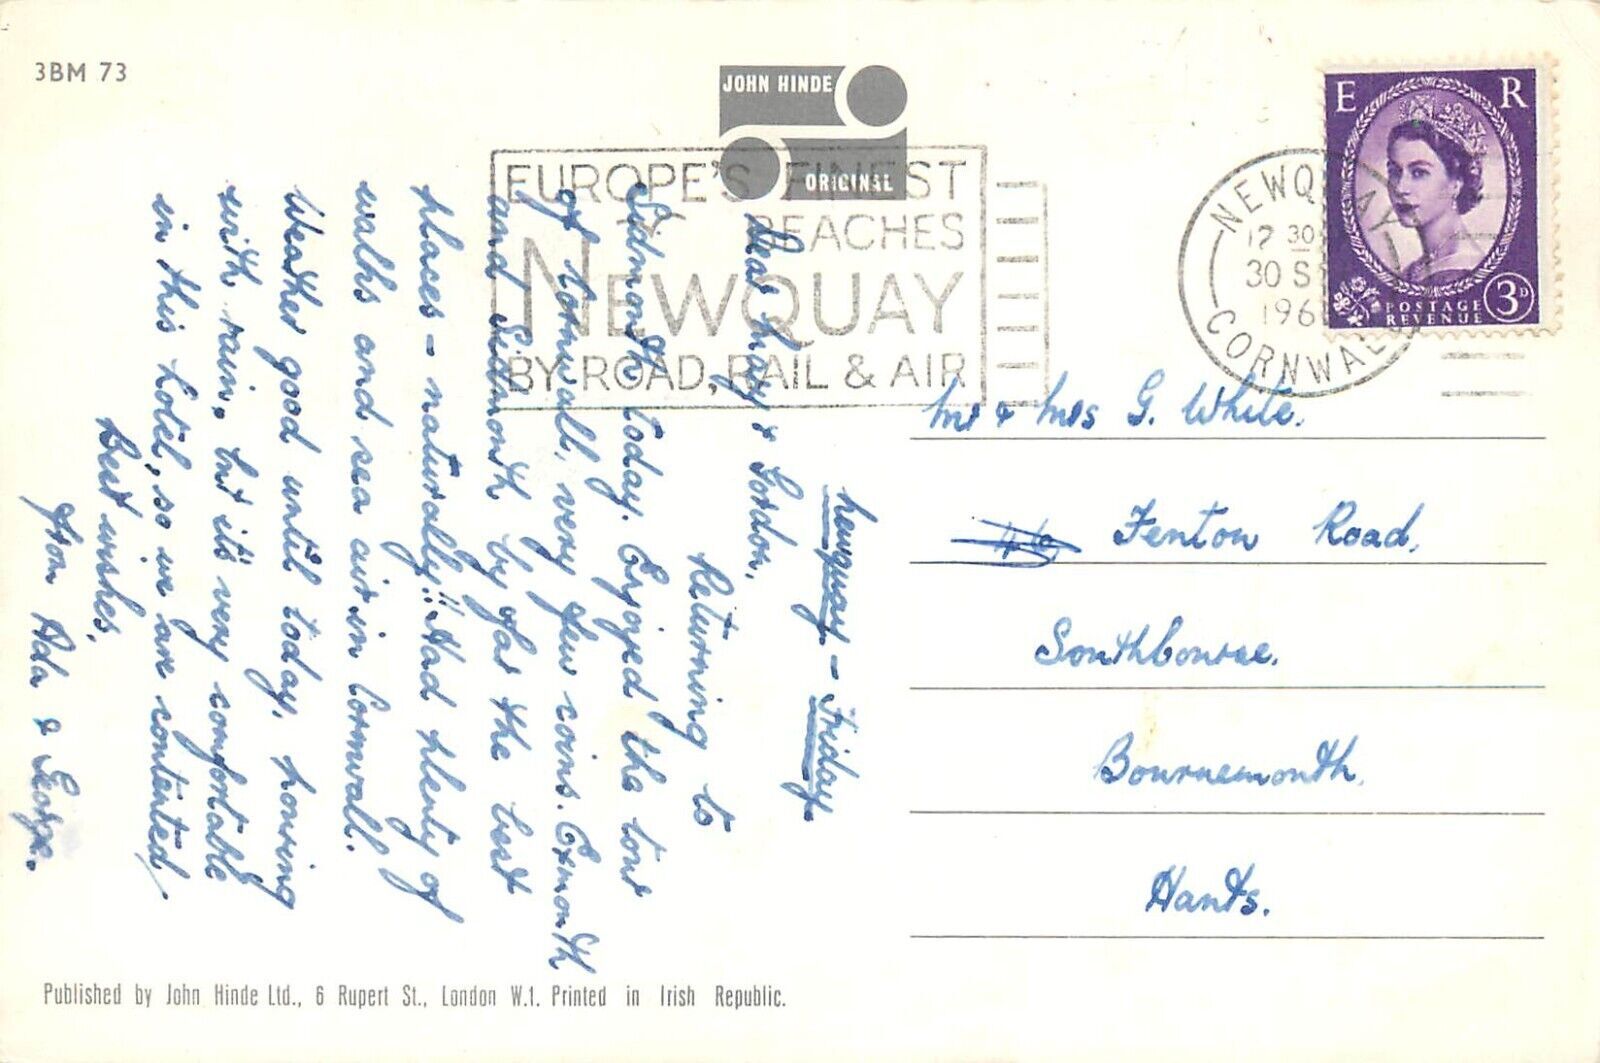 3BM 73
JOHN HINDE
ORIGINAL
EUROPE'S FINEST
BEACHES
NEWQUAY
BY ROAD, RAIL & AIR
NEWQUAY
12 30
30 S
196
CORNWALL
E R
POSTAGE
REVENUE
3D
Newquay - Friday.
Dear May & Gordon,
Returning to
Sidmouth today. Enjoyed the tour
of Cornwall, very few coins. Exmouth
and Sidmouth by far the best
places - naturally!! Had plenty of
walks and sea air in Cornwall.
Weather good until today, houring
with rain, but it's very comfortable
in this hotel, so we are contented,
Best wishes,
from Ada & George.
Mr & Mrs G. White.
Fenton Road,
Southbourne,
Bournemouth,
Hants.
Published by John Hinde Ltd., 6 Rupert St., London W.1. Printed in Irish Republic.